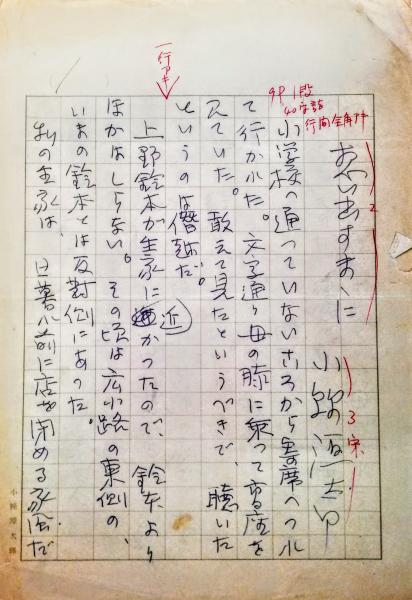 9P 1段
40字詰
行間全角アキ
思い出すまゝに
2
小絲源太郎
小学校へ通っていないころから寄席へつれ
て行かれた。文字通り母の膝に乗って高座を
見ていた。敢えて見たというべきで、聴いた
というのは僭越だ。
一行アキ
上野鈴本が生家に近かったので、鈴本より
ほかはしらない。その頃は広小路の東側の、
いまの鈴本とは反対側にあった。
私の生家は、日暮れ前に店を閉める家風だ
小絲源太郎